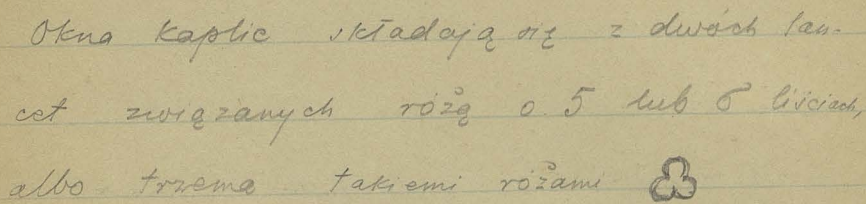 Okna kaplic składają się z dwóch lan-
cet związanych różą o 5 lub 6 liściach,
albo trzema takiemi różami